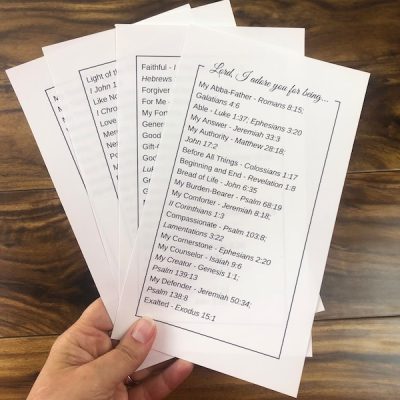 Lord, I adore you for being...
My Abba-Father - Romans 8:15;
Galatians 4:6
Able - Luke 1:37; Ephesians 3:20
My Answer - Jeremiah 33:3
My Authority - Matthew 28:18;
John 17:2
Before All Things - Colossians 1:17
Beginning and End - Revelation 1:8
Bread of Life - John 6:35
My Burden-Bearer - Psalm 68:19
My Comforter - Jeremiah 8:18;
II Corinthians 1:3
Compassionate - Psalm 103:8;
Lamentations 3:22
My Cornerstone - Ephesians 2:20
My Counselor - Isaiah 9:6
My Creator - Genesis 1:1,
Psalm 139:13
My Defender - Jeremiah 50:34;
Psalm 138:8
Exalted - Exodus 15:1
Faithful -
Hebrews
Forgiver
For Me -
My
Good
Light of
I John 1
Like No
I Chro
Love